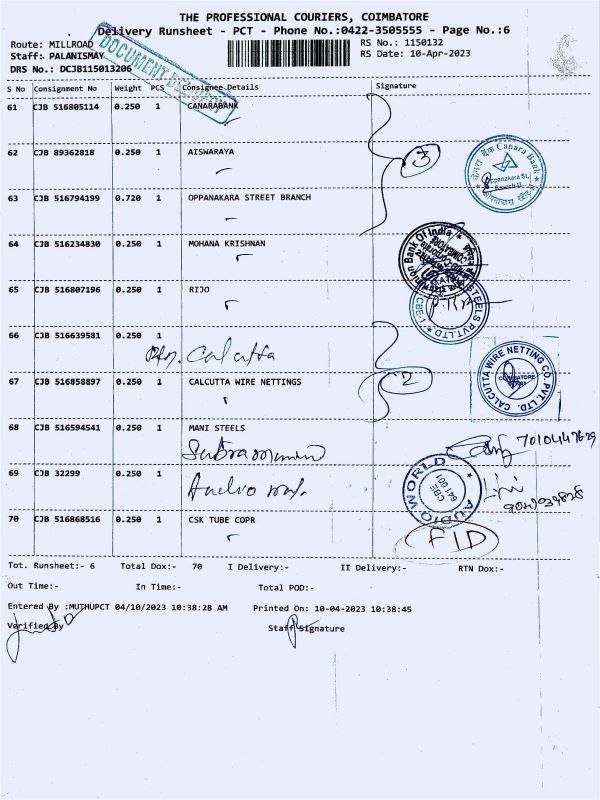 THE PROFESSIONAL COURIERS, COIMBATORE
Delivery Runsheet - PCT - Phone No.:0422-3505555 - Page No.:6
Route: MILLROAD
RS No.: 1150132
Staff: PALANISMAY
RS Date: 10-Apr-2023
DRS No.: DCJB115013206
DOCUMENT DELIVERY
S No Consignment No Weight PCS Consignee Details Signature
61 CJB 516805114 0.250 1 CANARABANK
62 CJB 89362818 0.250 1 AISWARAYA
3
केनरा बैंक Canara Bank
Oppanakara St.
63 CJB 516794199 0.720 1 OPPANAKARA STREET BRANCH
64 CJB 516234830 0.250 1 MOHANA KRISHNAN
Union Bank Of India
65 CJB 516807196 0.250 1 RIJO
STEELS PVT.LTD CBE-1
66 CJB 516639581 0.250 1
Calcutta
67 CJB 516858897 0.250 1 CALCUTTA WIRE NETTINGS
2
CALCUTTA WIRE NETTING CO. PVT. LTD.
COIMBATORE
68 CJB 516594541 0.250 1 MANI STEELS
69 CJB 32299 0.250 1
AUDIO WORLD
CBE
641 001
70 CJB 516868516 0.250 1 CSK TUBE COPR
FID
Tot. Runsheet:- 6 Total Dox:- 70 I Delivery:- II Delivery:- RTN Dox:-
Out Time:- In Time:- Total POD:-
Entered By :MUTHUPCT 04/10/2023 10:38:28 AM Printed On: 10-04-2023 10:38:45
Verified By Staff Signature